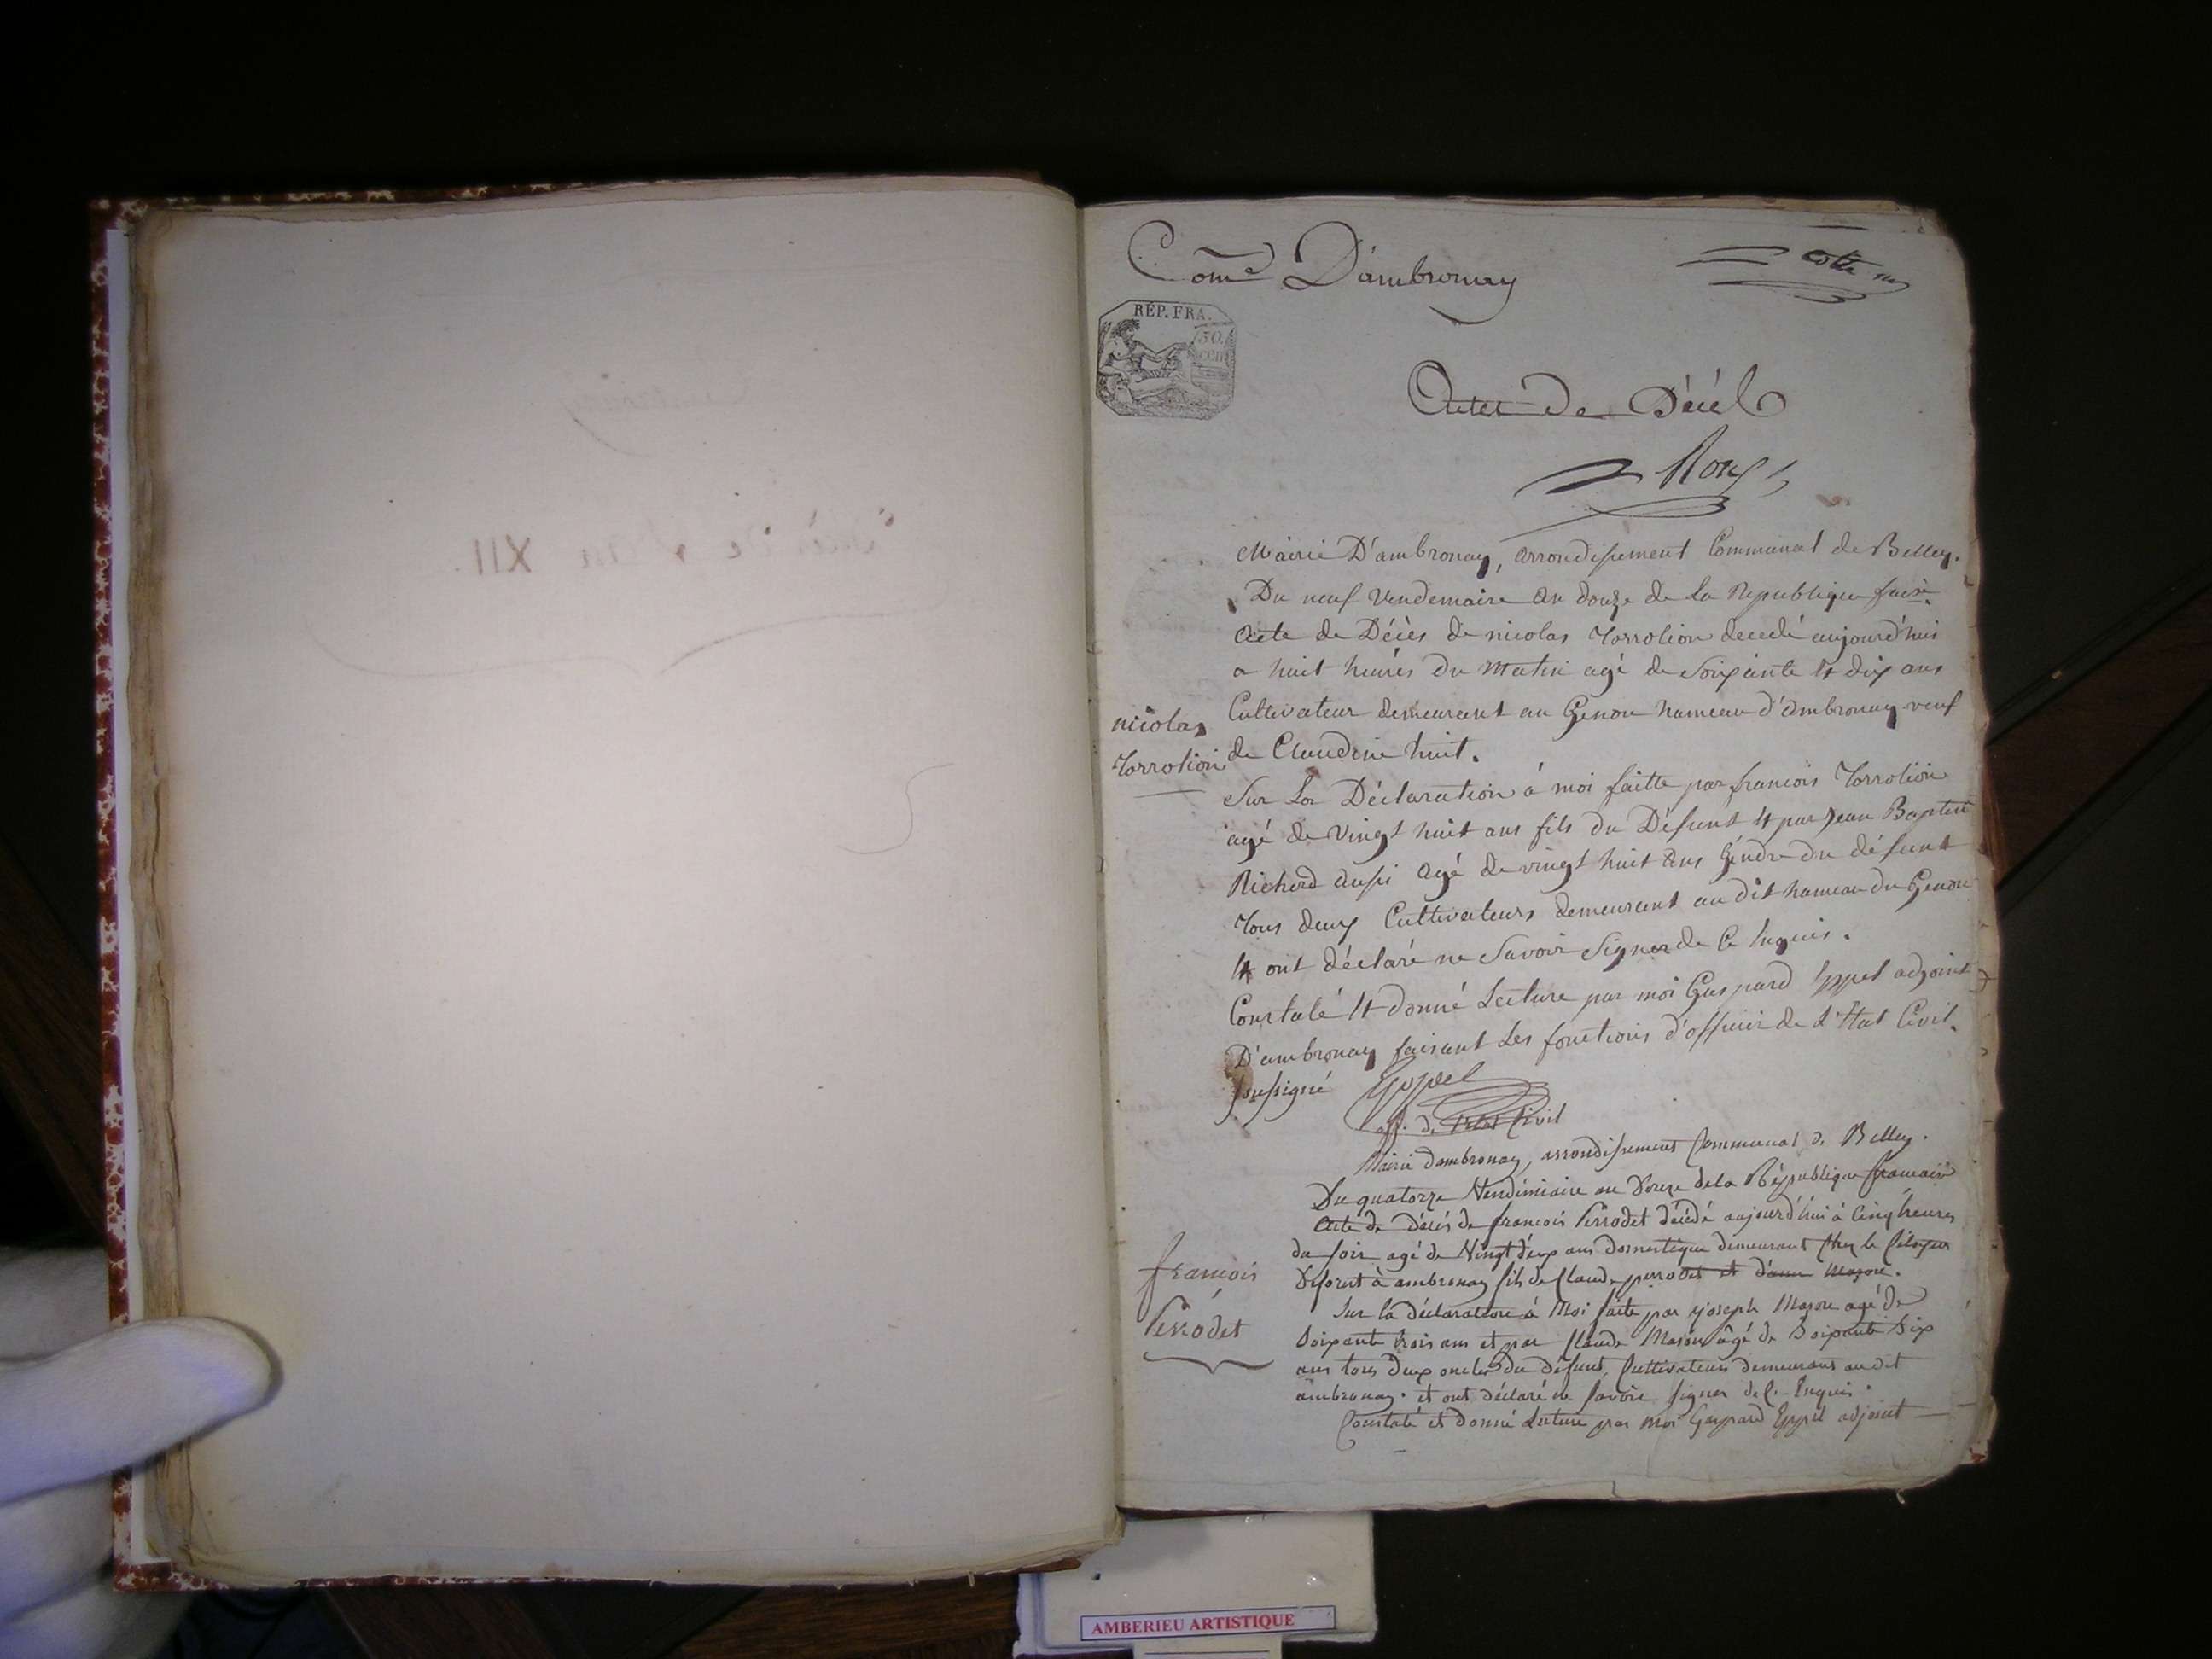 Come D'ambronay
Cotte
RÉP. FRA.
50.
cen
Actes de Décès
Mairie D'ambronay, arrondissement Communal de Belley.
Du neuf Vendemaire an douze de la Republique
Acte de Décès de nicolas Torrolion decedé aujourd'hui
a huit heures du matin agé de soixante et dix ans
Cultivateur demeurant au Genou hameau d'ambronay veuf
nicolas
Torrolion
de Claudine huit.
Sur La Déclaration à moi faitte par francois Torrolion
agé de Vingt huit ans fils du Défunt et par Jean Baptiste
Richerd aussi agé de vingt huit ans Gendre du défunt
Tous deux Cultivateurs demeurant au dit hameau du Genou
et ont déclaré ne Savoir Signer de Ce Enquis.
Constaté et donné Lecture par moi Gaspard Eppel adjoint
D'ambronay faisant Les fonctions d'officier de L'Etat Civil.
soussigné Eppel
off. de l'Etat Civil
Mairie dambronay, arrondissement Communal de Belley.
Du quatorze Vendémiaire an Douze de la République francaise
Acte de Décès de francois Perrodet décédé aujourd'hui à cinq heures
du soir agé de Vingt deux ans domestique demeurant chez le Citoyen
à ambronay fils de Claude perrodet et d'anne Mazore.
françois
Perrodet
Sur la déclaration à Moi faite par joseph Mazore agé de
Soixante trois ans et par Claude âgé de Soixante Six
ans tous deux oncles du défunt, Cultivateurs demeurans au dit
ambronay. et ont déclaré ne Savoir signer de ce Enquis.
Constaté et donné Lecture par moi Gaspard Eppel adjoint
AMBERIEU ARTISTIQUE